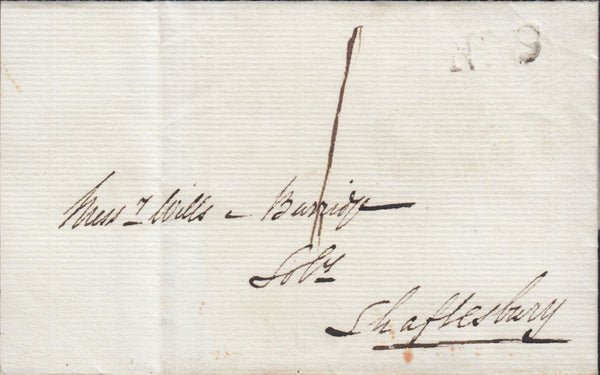 No 9
1
Mess.rs Wills & Burridge
Solrs
Shaftesbury